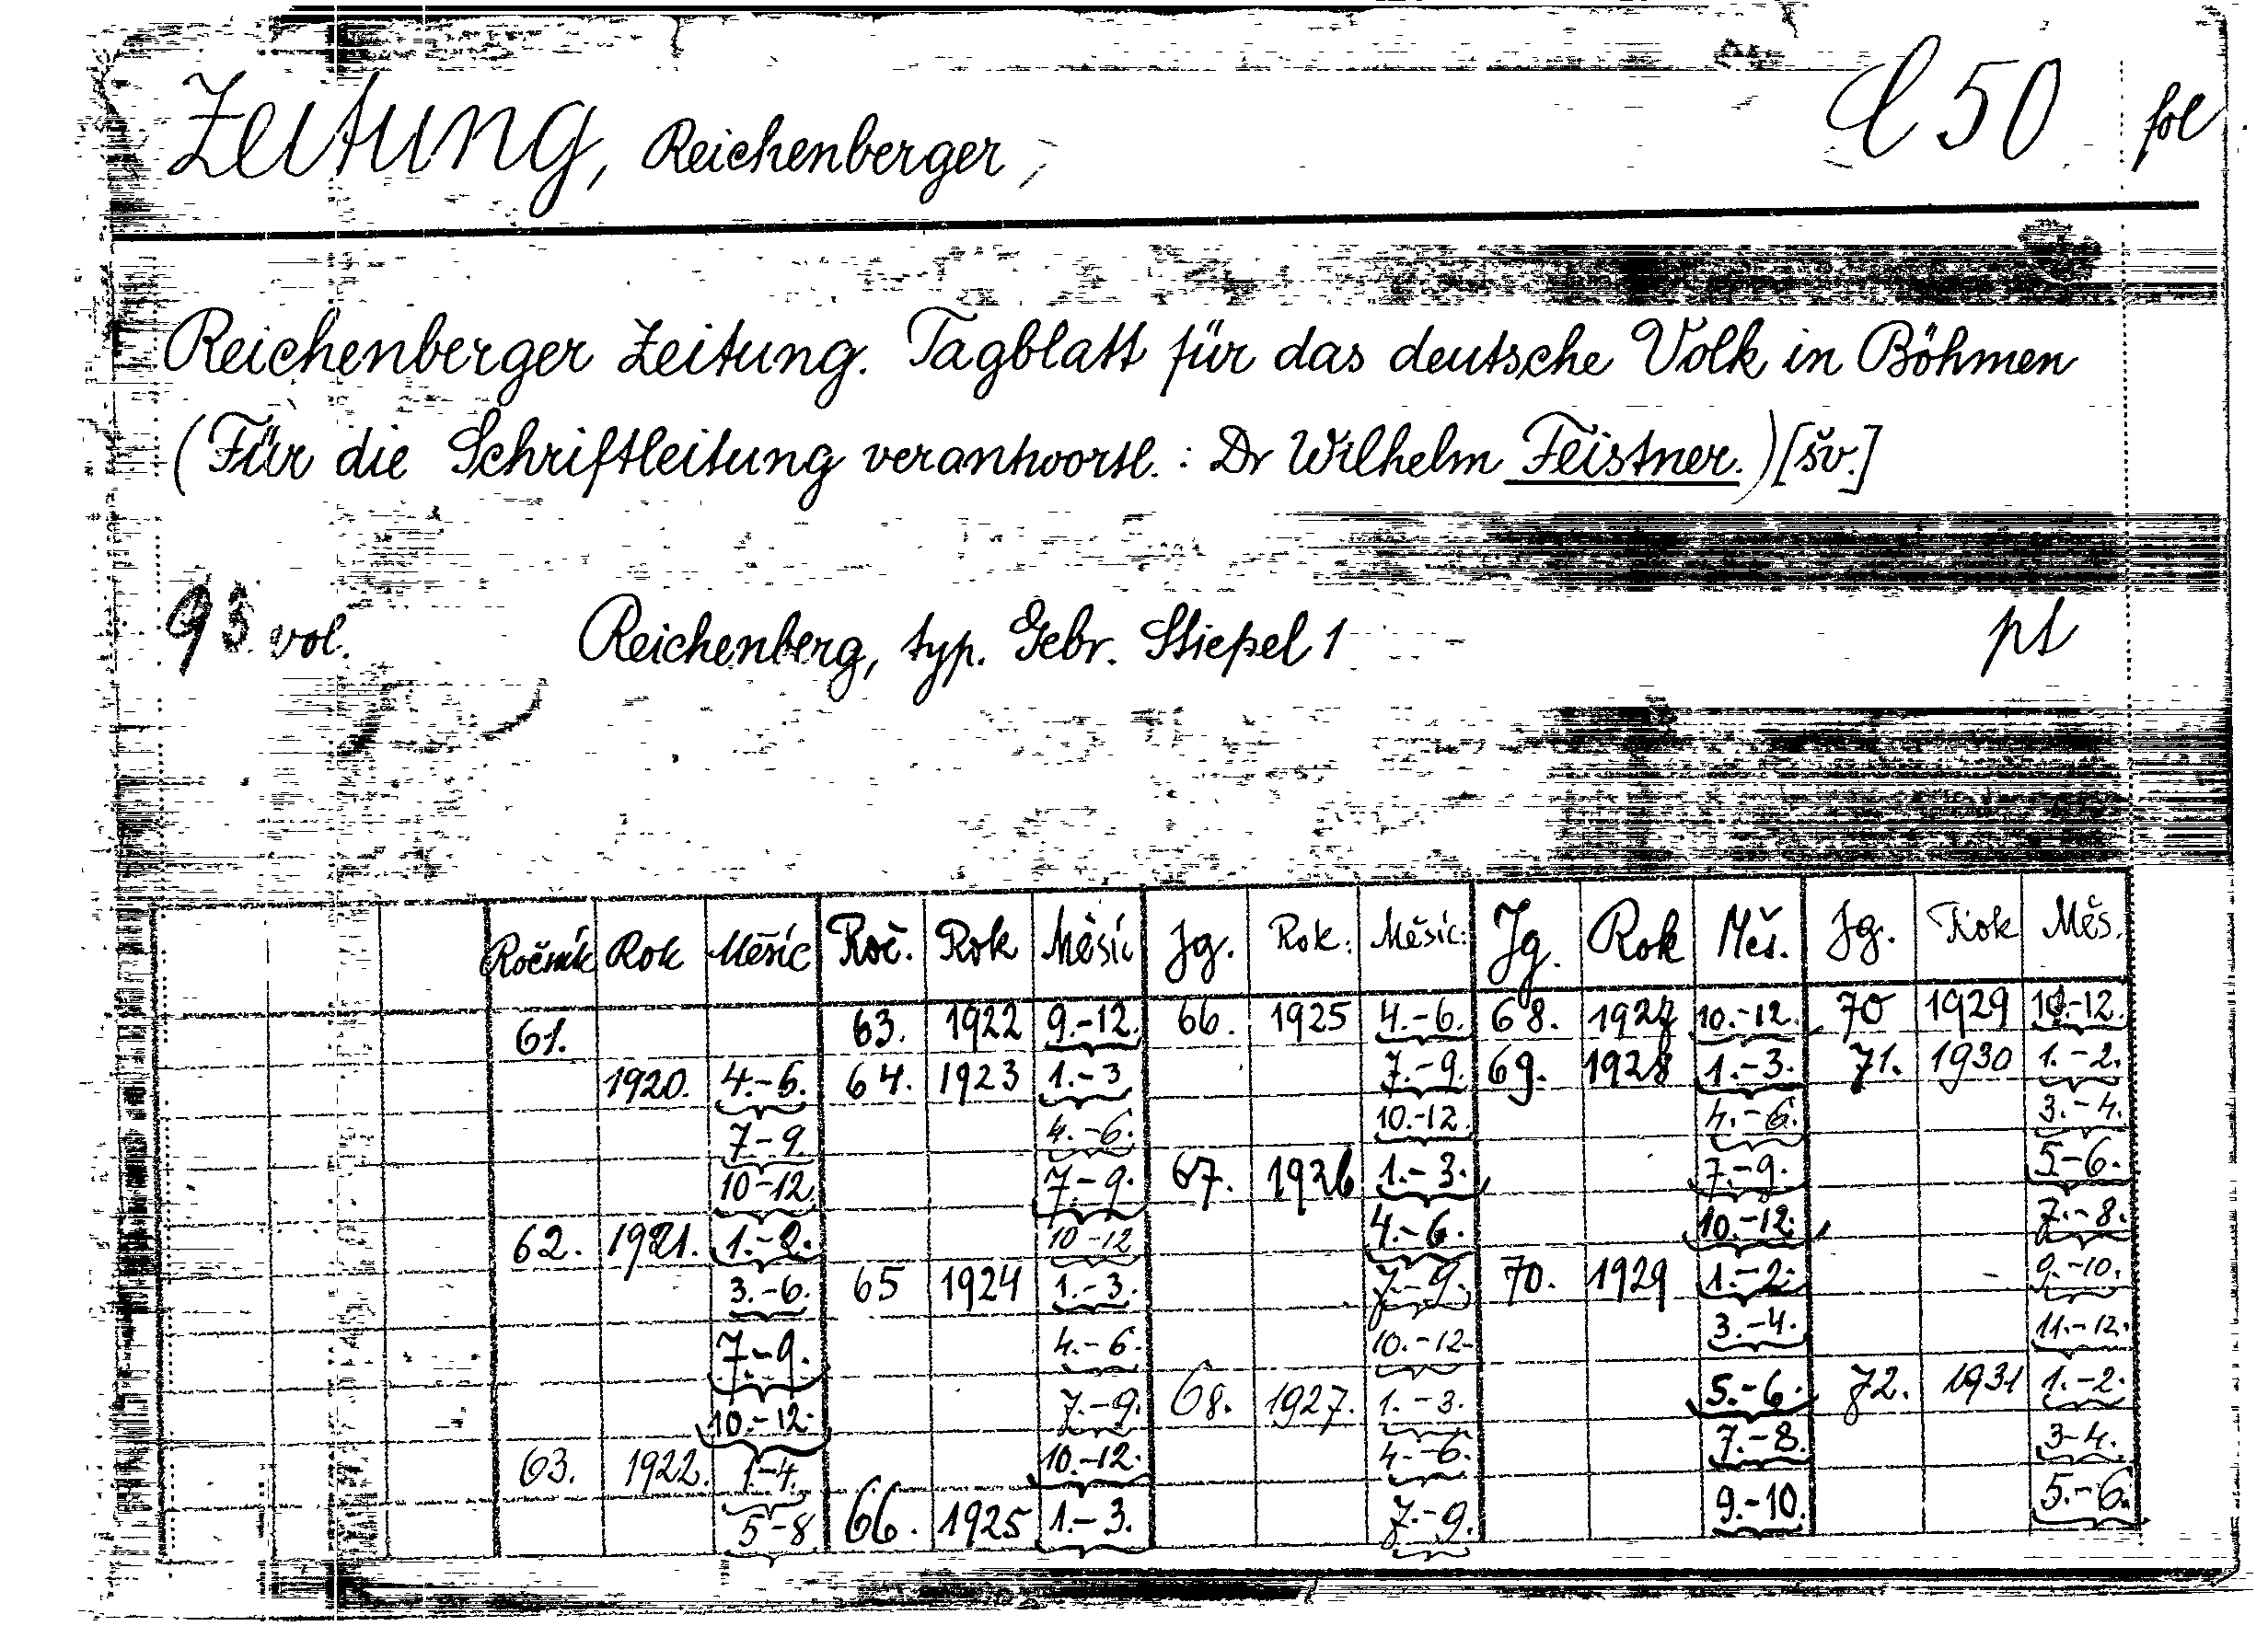 Zeitung, Reichenberger, E 50 fol.
Reichenberger Zeitung. Tagblatt für das deutsche Volk in Böhmen
(Für die Schriftleitung verantwortl.: Dr Wilhelm Feistner.) [šv.]
93 vol. Reichenberg, typ. Gebr. Stiepel 1 pt
Ročník Rok Měsíc Roč. Rok Měsíc Jg. Rok. Měsíc. Jg. Rok Měs. Jg. Rok Měs.
61. 63. 1922 9.-12. 66. 1925 4.-6. 68. 1927 10.-12. 70 1929 11.-12.
1920. 4.-6. 64. 1923 1.-3 7.-9. 69. 1928 1.-3. 71. 1930 1.-2.
7-9. 4.-6. 10.-12. 4.-6. 3.-4.
10-12. 7.-9. 67. 1926 1.-3. 7.-9. 5-6.
62. 1921. 1.-2. 10-12 4.-6. 10.-12. 7.-8.
3.-6. 65 1924 1.-3. 7.-9. 70. 1929 1.-2. 9.-10.
7.-9. 4.-6. 10.-12. 3.-4. 11.-12.
10.-12. 7.-9. 68. 1927. 1.-3. 5.-6. 72. 1931 1.-2.
63. 1922. 1.-4. 10.-12. 4.-6. 7.-8. 3-4.
5-8 66. 1925 1.-3. 7.-9. 9.-10. 5.-6.